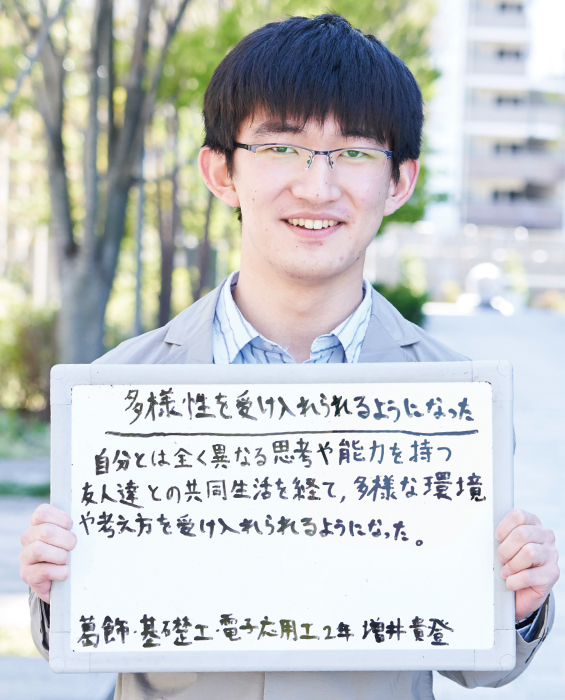 多様性を受け入れられるようになった
自分とは全く異なる思考や能力を持つ
友人達との共同生活を経て,多様な環境
や考え方を受け入れられるようになった。
葛飾・基礎工・電子応用工 2年 増井貴登